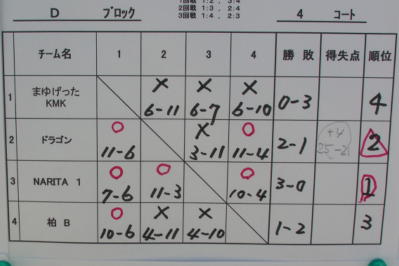 1回戦 1:2 , 3:4
2回戦 1:3 , 2:4
3回戦 1:4 , 2:3
D ブロック 4 コート
チーム名 1 2 3 4 勝 敗 得失点 順位
1 まゆげった KMK × 6-11 × 6-7 × 6-10 0-3 4
2 ドラゴン ○ 11-6 × 3-11 ○ 11-4 2-1 2
3 NARITA 1 ○ 7-6 ○ 11-3 ○ 10-4 3-0 1
4 柏 B ○ 10-6 × 4-11 × 4-10 1-2 3